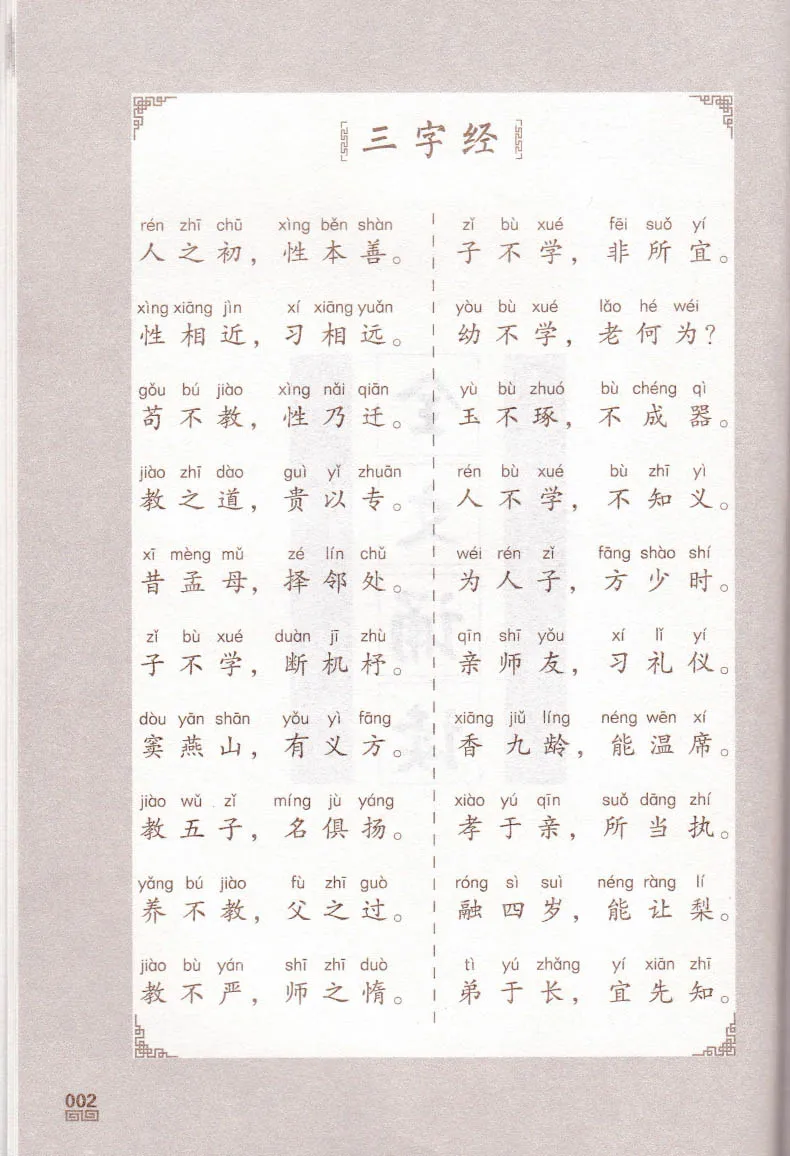 三字经
rén zhī chū xìng běn shàn
人之初，性本善。
xìng xiāng jìn xí xiāng yuǎn
性相近，习相远。
gǒu bú jiào xìng nǎi qiān
苟不教，性乃迁。
jiào zhī dào guì yǐ zhuān
教之道，贵以专。
xī mèng mǔ zé lín chǔ
昔孟母，择邻处。
zǐ bù xué duàn jī zhù
子不学，断机杼。
dòu yān shān yǒu yì fāng
窦燕山，有义方。
jiào wǔ zǐ míng jù yáng
教五子，名俱扬。
yǎng bú jiào fù zhī guò
养不教，父之过。
jiào bù yán shī zhī duò
教不严，师之惰。
zǐ bù xué fēi suǒ yí
子不学，非所宜。
yòu bù xué lǎo hé wéi
幼不学，老何为？
yù bù zhuó bù chéng qì
玉不琢，不成器。
rén bù xué bù zhī yì
人不学，不知义。
wéi rén zǐ fāng shào shí
为人子，方少时。
qīn shī yǒu xí lǐ yí
亲师友，习礼仪。
xiāng jiǔ líng néng wēn xí
香九龄，能温席。
xiào yú qīn suǒ dāng zhí
孝于亲，所当执。
róng sì suì néng ràng lí
融四岁，能让梨。
tì yú zhǎng yí xiān zhī
弟于长，宜先知。
002